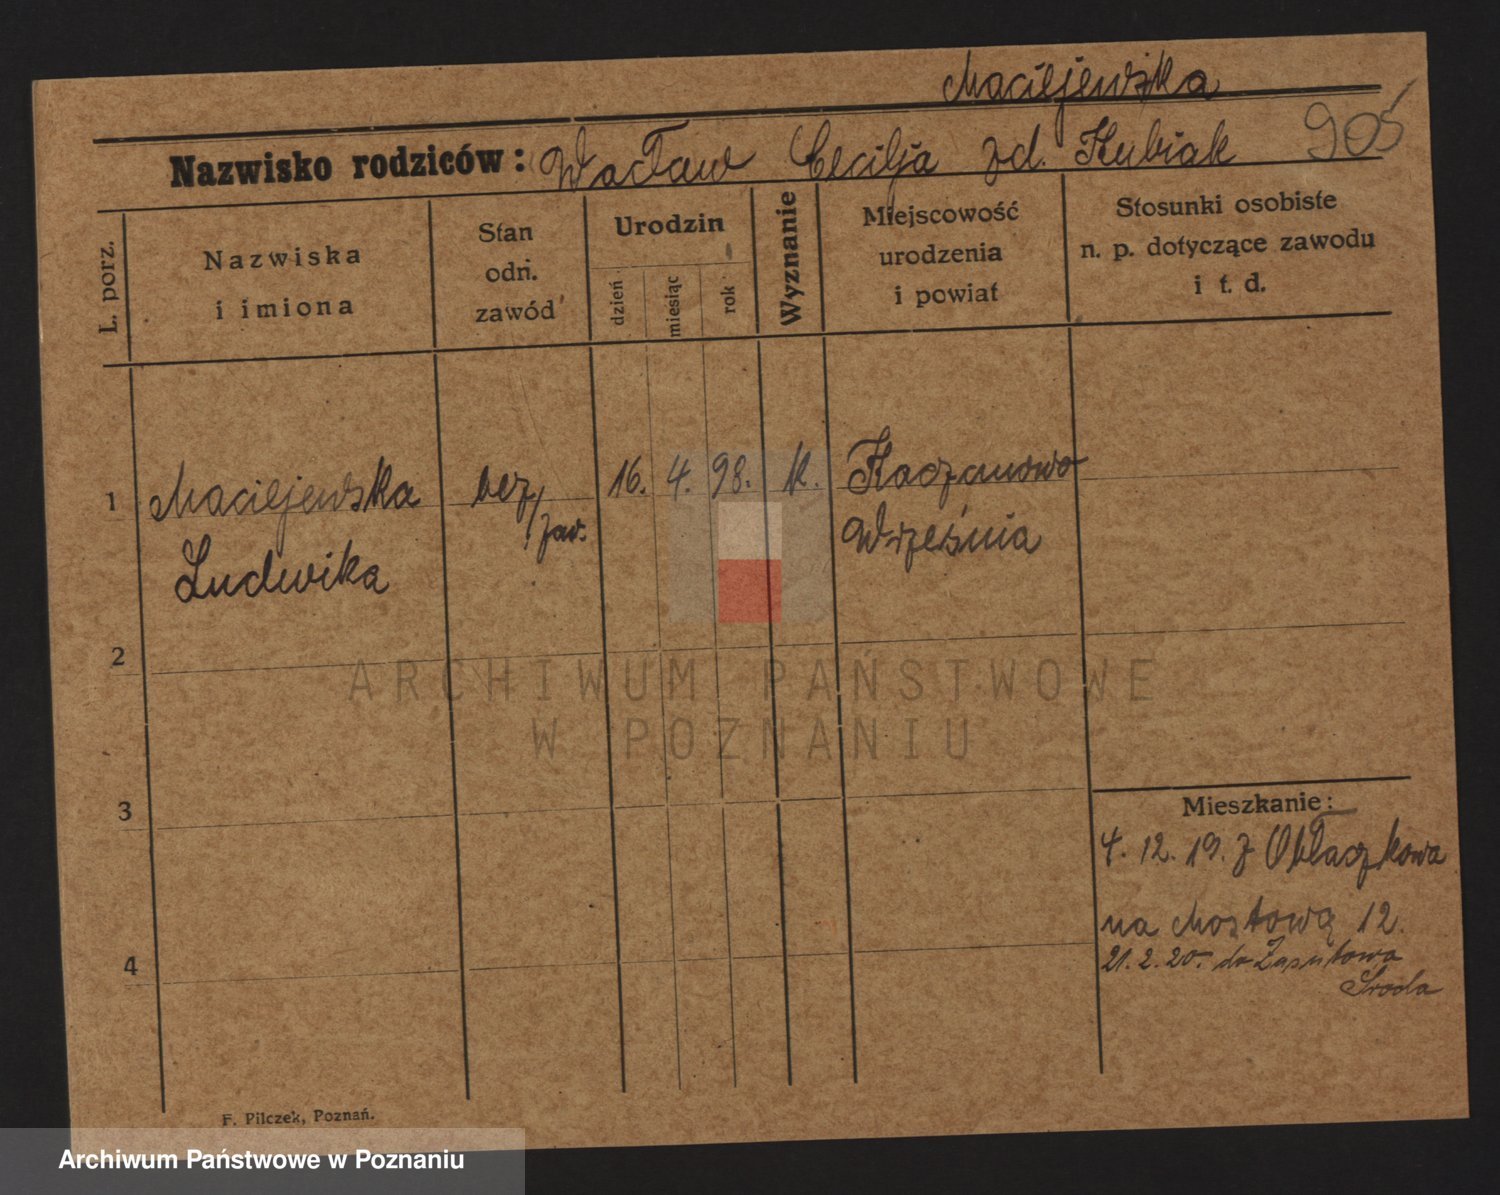 Maciejewska
Nazwisko rodziców: Wacław Cecilja zd. Kubiak 905
L. porz.
Nazwiska
i imiona
Stan
odn.
zawód
Urodzin
dzień
miesiąc
rok
Wyznanie
Miejscowość
urodzenia
i powiat
Stosunki osobiste
n. p. dotyczące zawodu
i t. d.
1 Maciejewska bez/zaw. 16. 4. 98. k. Kaczanowo
Ludwika Września
2
3
4
Mieszkanie:
4. 12. 19. z Obłaczkowa
na Mostową 12.
21. 2. 20. do Zasutowa
Środa
F. Pilczek, Poznań.
ARCHIWUM PAŃSTWOWE
W POZNANIU
Archiwum Państwowe w Poznaniu